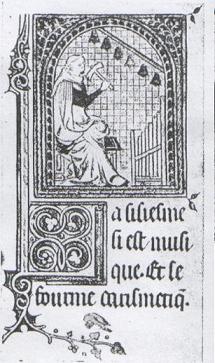 a sisiesme
si est musi
que. Et se
fourme darismetiq̃.